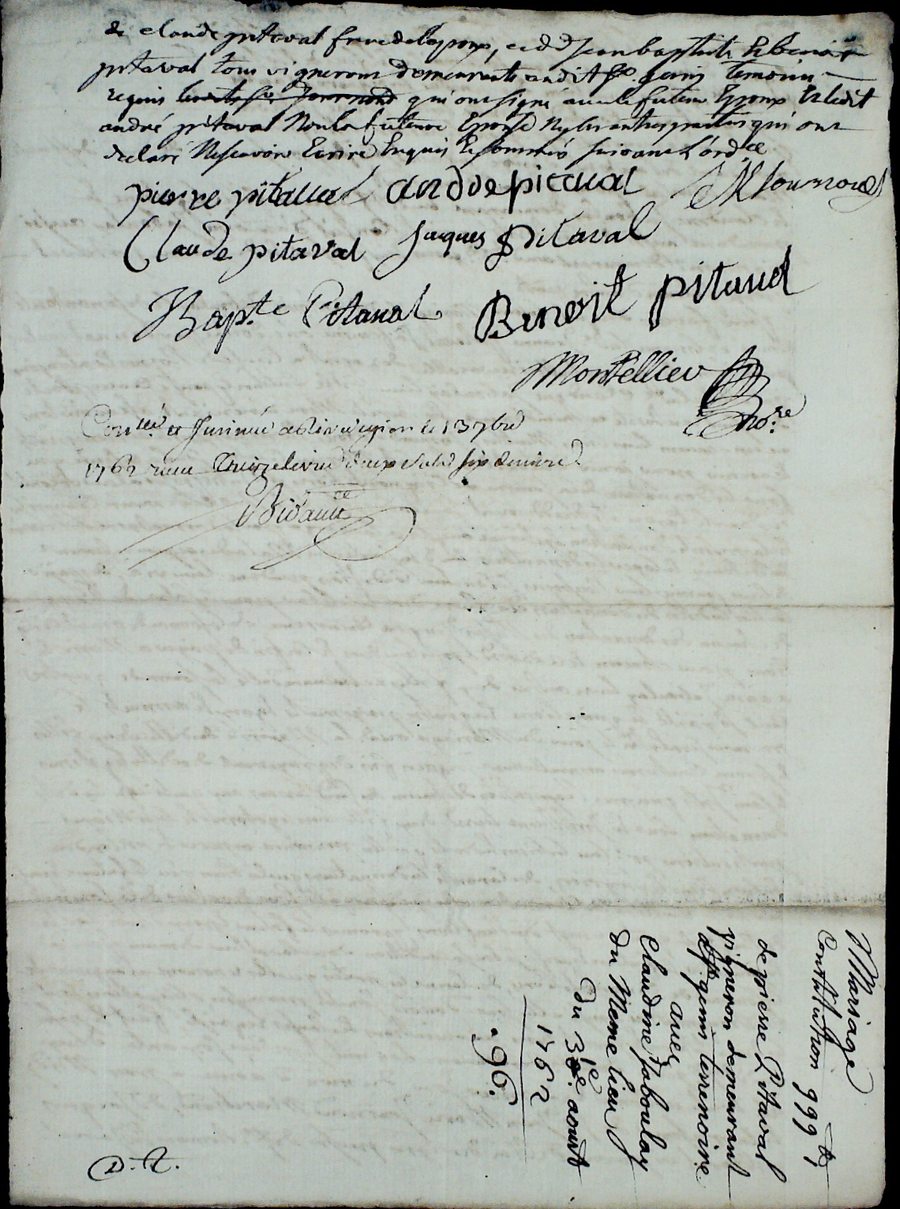 de claude pitaval frere de lepoux, et de Jean baptiste & benoit
pitaval tous vignerons demeurants audit St genis temoins
requis qui ont signé avec le futeur Epoux & ledit
andré pitaval Non la future Epouse Ny les autres parties qui ont
declaré Ne scavoir Ecrire Enquis & sommés suivant L'ordce
pierre pitaval andre picaval
Claude pitaval Jaques Pitaval
Bapte Pitaval Benoit pitaval
Montellier
no.re
Conllé et Insinué a le 13 7bre
1762 reçu livres six deniers
Mariage
Constitution 999
de pierre Pitaval
vigneron demeurant
genis terrenoire
avec
Claudine Jaboulay
du Meme lieu
du 31e aoust
1762
.96.
D. T.